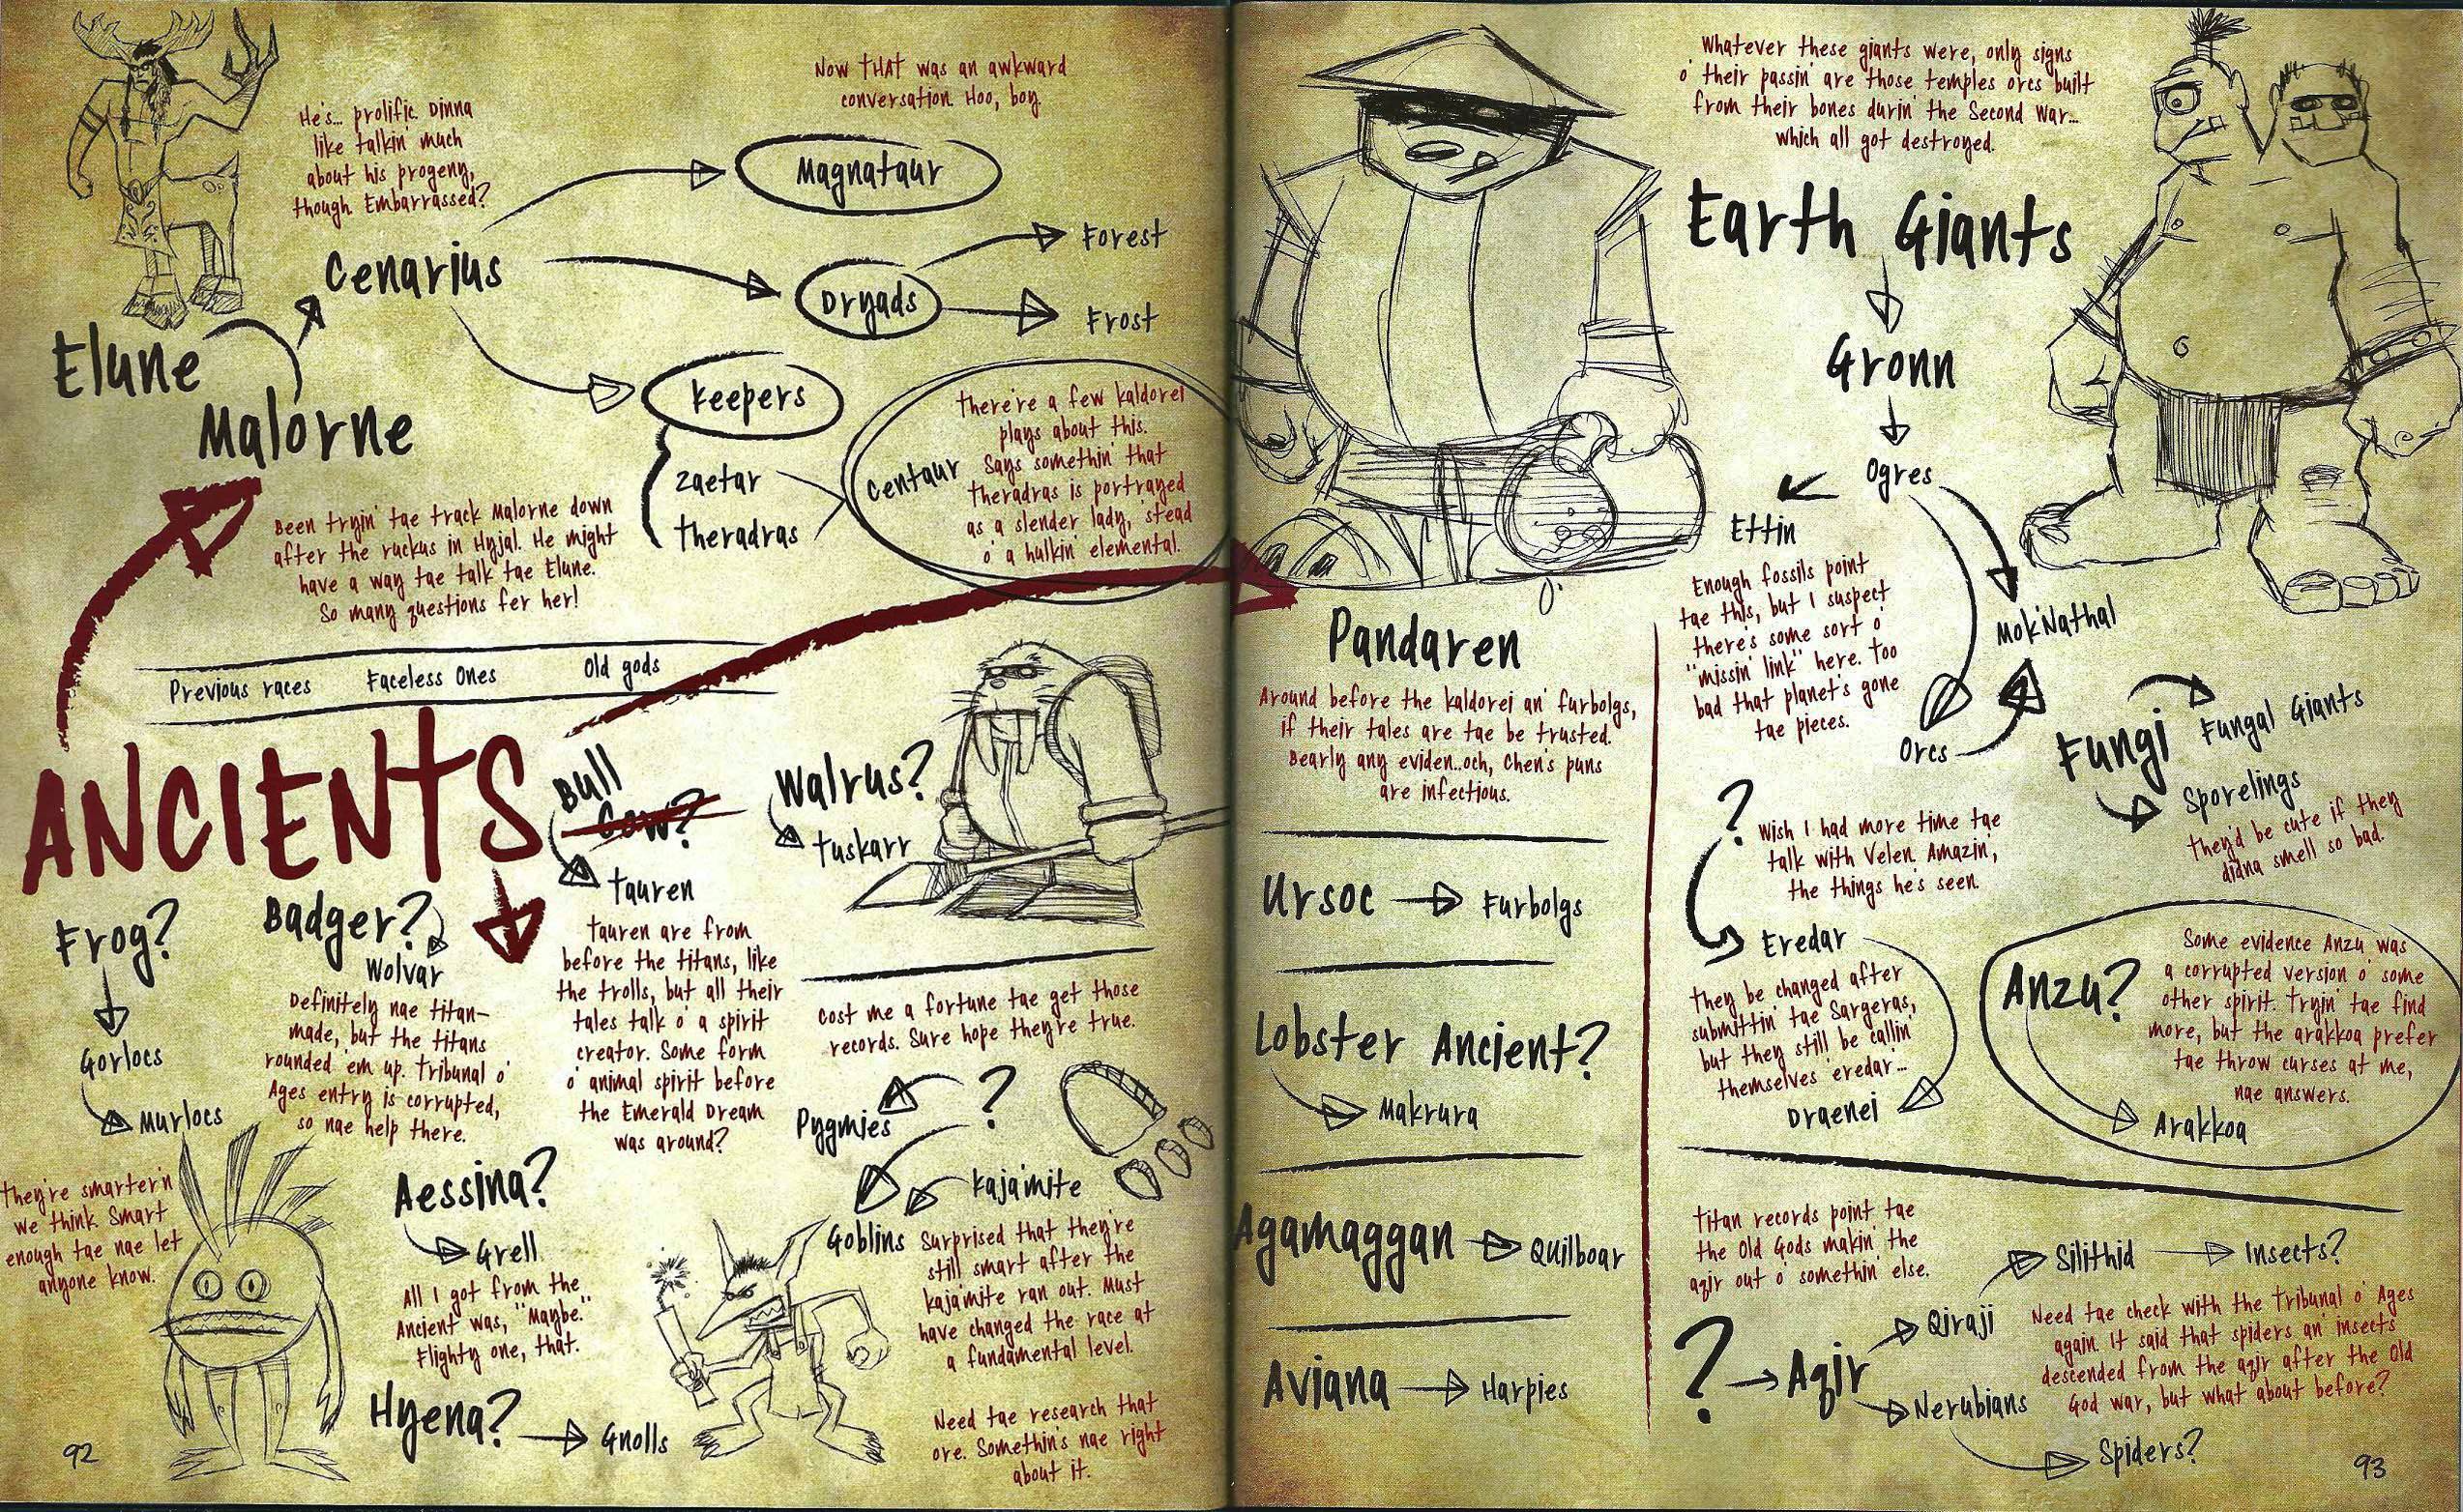 He's... prolific. Dinna
like talkin' much
about his progeny,
though. Embarrassed?
Now THAT was an awkward
conversation. Hoo, boy.
Magnataur
Cenarius
Forest
Dryads
Frost
Elune
Malorne
Keepers
Zaetar
Theradras
Centaur
There're a few kaldorei
plays about this.
Says somethin' that
Theradras is portrayed
as a slender lady, 'stead
o' a hulkin' elemental.
Been tryin' tae track Malorne down
after the ruckus in Hyjal. He might
have a way tae talk tae Elune.
So many questions fer her!
Previous races
Faceless Ones
Old gods
ANCIENTS
Bull
Cow?
Tauren
Tauren are from
before the titans, like
the trolls, but all their
tales talk o' a spirit
creator. Some form
o' animal spirit before
the Emerald Dream
was around?
Walrus?
Tuskarr
Frog?
Gorlocs
Murlocs
They're smarter'n
we think. Smart
enough tae nae let
anyone know.
Badger?
Wolvar
Definitely nae titan-
made, but the titans
rounded 'em up. Tribunal o'
Ages entry is corrupted,
so nae help there.
Aessina?
Grell
All I got from the
Ancient was, "Maybe."
Flighty one, that.
Hyena?
Gnolls
Cost me a fortune tae get those
records. Sure hope they're true.
?
Pygmies
Kaja'mite
Goblins
Surprised that they're
still smart after the
kaja'mite ran out. Must
have changed the race at
a fundamental level.
Need tae research that
ore. Somethin's nae right
about it.
92
Pandaren
Around before the kaldorei an' furbolgs,
if their tales are tae be trusted.
Bearly any eviden..och, Chen's puns
are infectious.
Ursoc
Furbolgs
Lobster Ancient?
Makrura
Agamaggan
Quilboar
Aviana
Harpies
Whatever these giants were, only signs
o' their passin' are those temples orcs built
from their bones durin' the Second War...
which all got destroyed.
Earth Giants
Gronn
Ogres
Ettin
Enough fossils point
tae this, but I suspect
there's some sort o'
"missin' link" here. Too
bad that planet's gone
tae pieces.
Mok'Nathal
Orcs
Fungi
Fungal Giants
Sporelings
They'd be cute if they
didna smell so bad.
?
Wish I had more time tae
talk with Velen. Amazin',
the things he's seen.
Eredar
They be changed after
submittin' tae Sargeras,
but they still be callin'
themselves 'eredar'...
Draenei
Anzu?
Some evidence Anzu was
a corrupted version o' some
other spirit. Tryin' tae find
more, but the arakkoa prefer
tae throw curses at me,
nae answers.
Arakkoa
Titan records point tae
the Old Gods makin' the
aqir out o' somethin' else.
?
Aqir
Qiraji
Silithid
Insects?
Nerubians
Spiders?
Need tae check with the Tribunal o' Ages
again. It said that spiders an' insects
descended from the aqir after the Old
God war, but what about before?
93